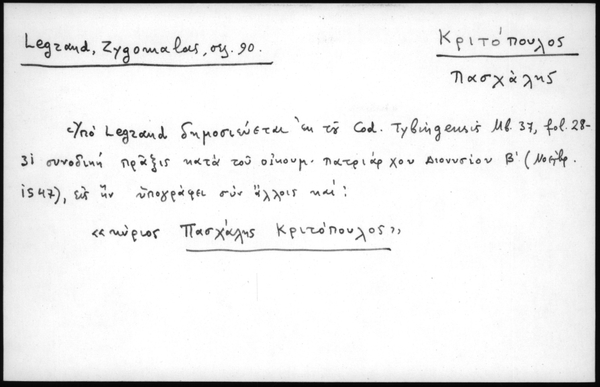 Legrand, Zygomalas, σελ. 90.
Κριτόπουλος
Πασχάλης
Ὑπὸ Legrand δημοσιεύεται ἐκ τοῦ Cod. Tybingensis Mb. 37, fol. 28-
31 συνοδικὴ πρᾶξις κατὰ τοῦ οἰκουμ. πατριάρχου Διονυσίου Β' (Νοέμβρ.
1547), εἰς ἣν ὑπογράφει σὺν ἄλλοις καὶ:
«κύριος Πασχάλης Κριτόπουλος»